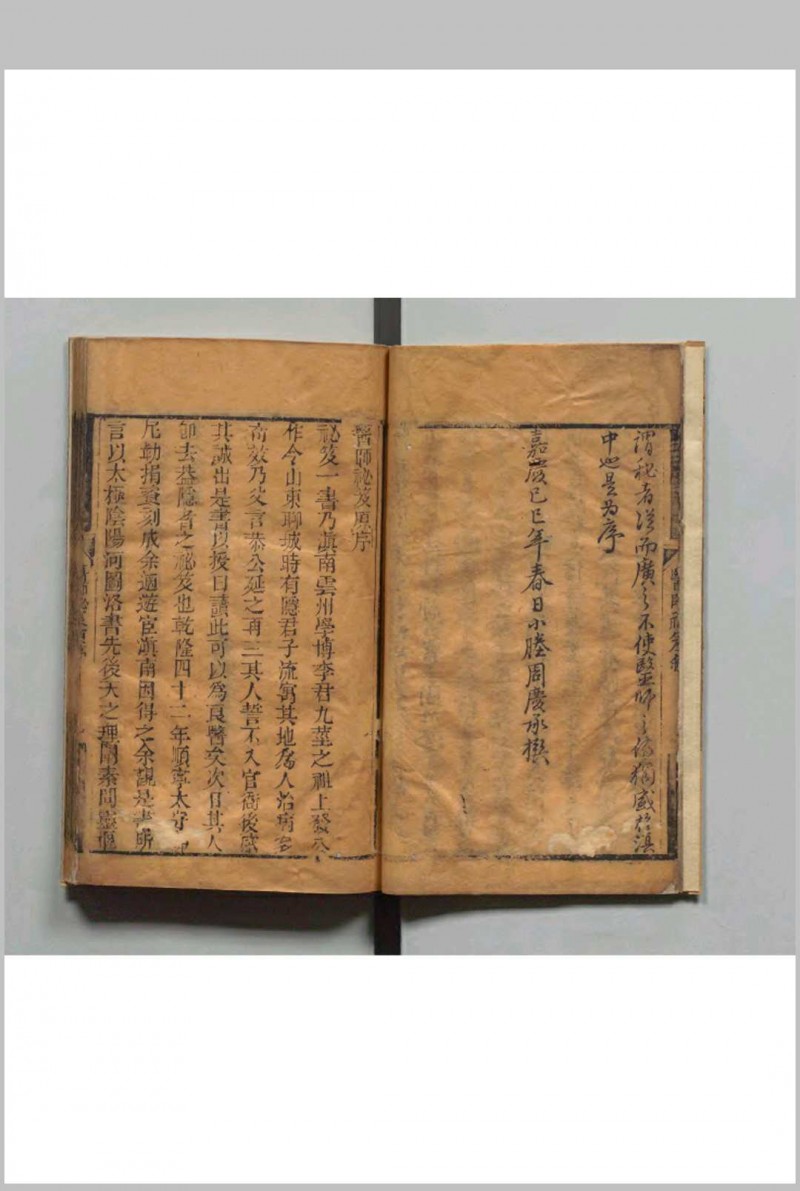 謂秘者從而廣之不使醫師之傳獨盛於滇
中也是為序
嘉慶己巳年春日小塍周慶承撰
醫師祕笈原序
祕笈一書乃滇南雲州學博李君九莖之祖上發公
作令山東聊城時有隱君子流寓其地爲人治病多
奇效乃父言恭公延之再三其人誓不入官衙後感
其誠出是書以授曰讀此可以爲良醫矣次日其人
卽去葢隱者之祕笈也乾隆四十二年順寧太守
捐資刻成余適遊宦滇南因得之余觀是書所
言以太極陰陽河圖洛書先後天之理闡素問靈樞